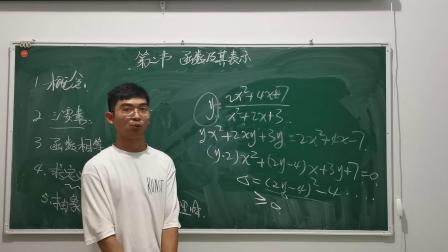 第二节 函数及其表示
1. 概念
2 三要素
3 函数相等
4. 求定义
5. 抽象
y = (2x²+4x-7)/(x²+2x+3)
yx²+2xy+3y=2x²+4x-7
(y-2)x²+(2y-4)x+3y+7=0
=(2y-4)²-4....
≥0